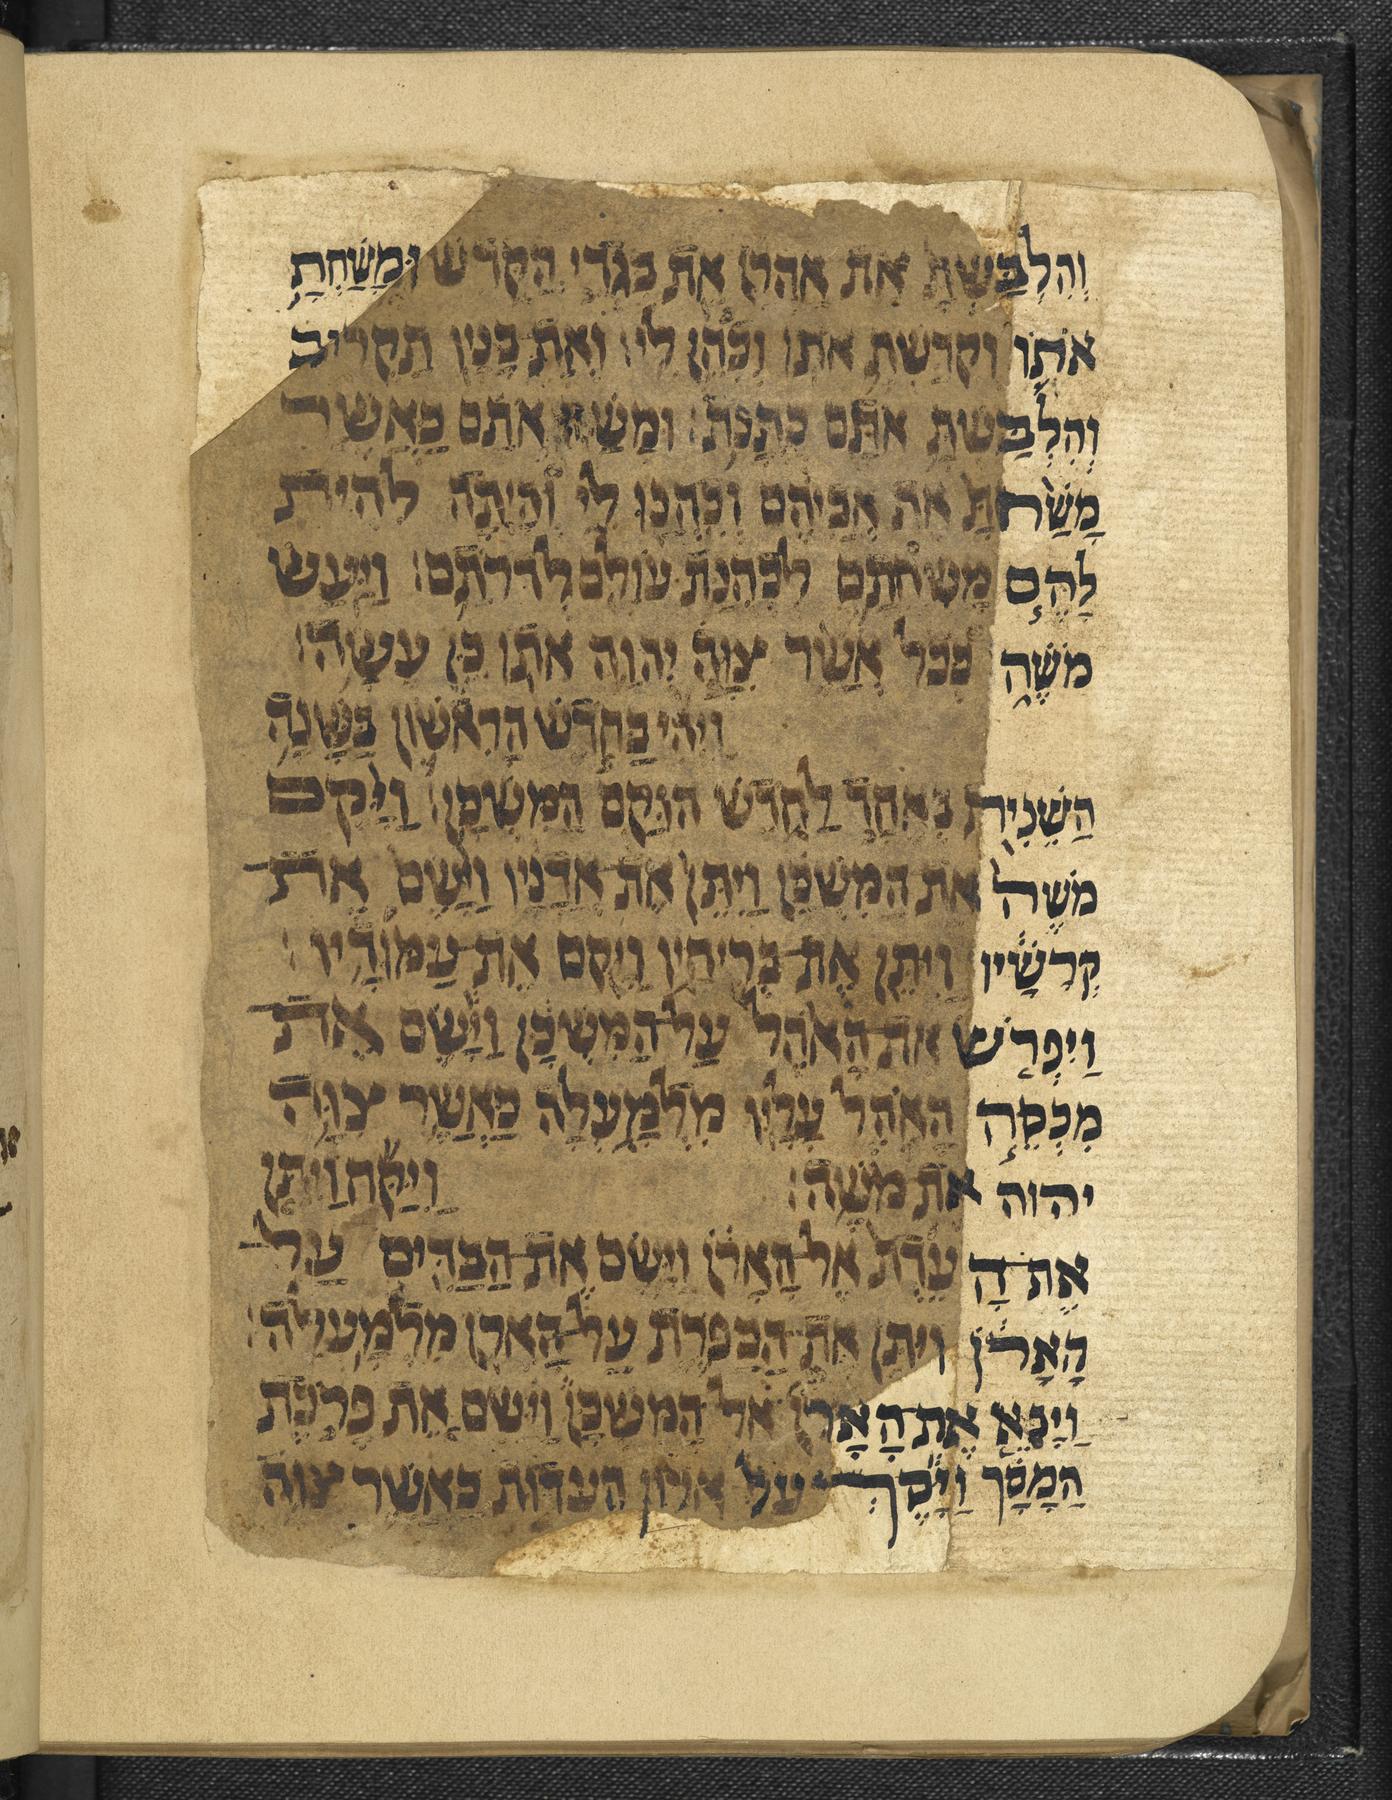 וְהִלְבַּשְׁתָּ אֶת אַהֲרֹן אֵת בִּגְדֵי הַקֹּדֶשׁ וּמָשַׁחְתָּ
אֹתוֹ וְקִדַּשְׁתָּ אֹתוֹ וְכִהֵן לִי׃ וְאֶת בָּנָיו תַּקְרִיב
וְהִלְבַּשְׁתָּ אֹתָם כֻּתֳּנֹת׃ וּמָשַׁחְתָּ אֹתָם כַּאֲשֶׁר
מָשַׁחְתָּ אֶת אֲבִיהֶם וְכִהֲנוּ לִי וְהָיְתָה לִהְיֹת
לָהֶם מָשְׁחָתָם לִכְהֻנַּת עוֹלָם לְדֹרֹתָם׃ וַיַּעַשׂ
מֹשֶׁה כְּכֹל אֲשֶׁר צִוָּה יְהוָה אֹתוֹ כֵּן עָשָׂה׃
וַיְהִי בַּחֹדֶשׁ הָרִאשׁוֹן בַּשָּׁנָה
הַשֵּׁנִית בְּאֶחָד לַחֹדֶשׁ הוּקַם הַמִּשְׁכָּן׃ וַיָּקֶם
מֹשֶׁה אֶת־הַמִּשְׁכָּן וַיִּתֵּן אֶת־אֲדָנָיו וַיָּשֶׂם אֶת־
קְרָשָׁיו וַיִּתֵּן אֶת־בְּרִיחָיו וַיָּקֶם אֶת־עַמּוּדָיו׃
וַיִּפְרֹשׂ אֶת־הָאֹהֶל עַל־הַמִּשְׁכָּן וַיָּשֶׂם אֶת־
מִכְסֵה הָאֹהֶל עָלָיו מִלְמָעְלָה כַּאֲשֶׁר צִוָּה
יהוה אֶת מֹשֶׁה׃ וַיִּקַּח וַיִּתֵּן
אֶת־הָ עֵדֻת אֶל־הָאָרֹן וַיָּשֶׂם אֶת־הַבַּדִּים עַל־
הָאָרֹן וַיִּתֵּן אֶת־הַכַּפֹּרֶת עַל־הָאָרֹן מִלְמָעְלָה׃
וַיָּבֵא אֶת־הָאָרֹן אֶל־הַמִּשְׁכָּן וַיָּשֶׂם אֵת פָּרֹכֶת
הַמָּסָךְ וַיָּסֶךְ עַל אֲרוֹן הָעֵדוּת כַּאֲשֶׁר צִוָּה